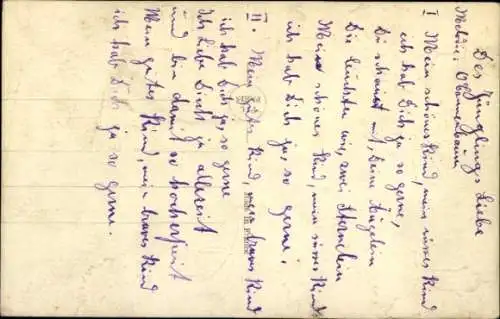 Des Jünglings Liebe
Melodie: O Tannenbaum
I Mein schönes Kind, mein süsses Kind
ich hab Dich ja so gerne,
Du scheinst mir, Deine Äugelein
Die leuchten wie zwei Sternlein
Mein schönes Kind, mein süsses Kind
ich hab Dich ja, so gerne.
II. Mein gutes Kind, mein braves Kind
ich hab Dich ja, so gerne
Ich Liebe Dich ja allezeit
und bin damit so hocherfreut
Mein gutes Kind, mein braves Kind
ich hab Dich ja so gerne.